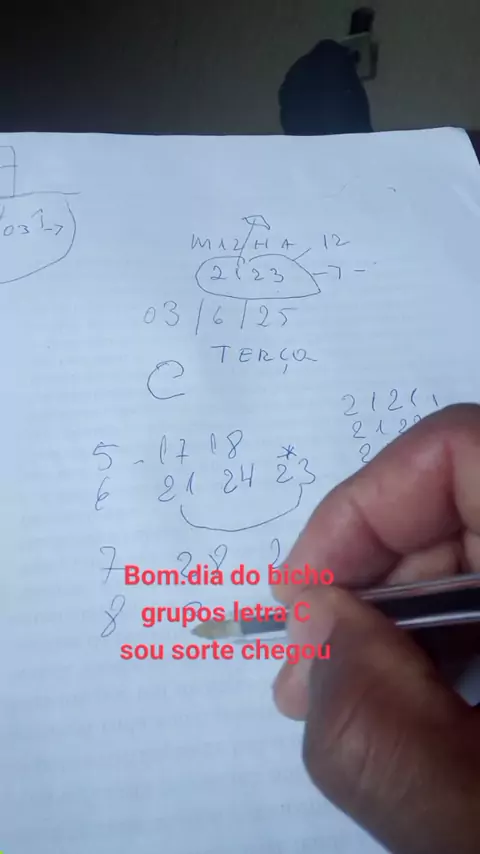 03 1-7
MIZHA 12
2123 -7-
03/6/25
TERÇA
C
5 - 17 18
6 21 24 23
2121
7 28 2
8
Bom.dia do bicho
grupos letra C
sou sorte chegou